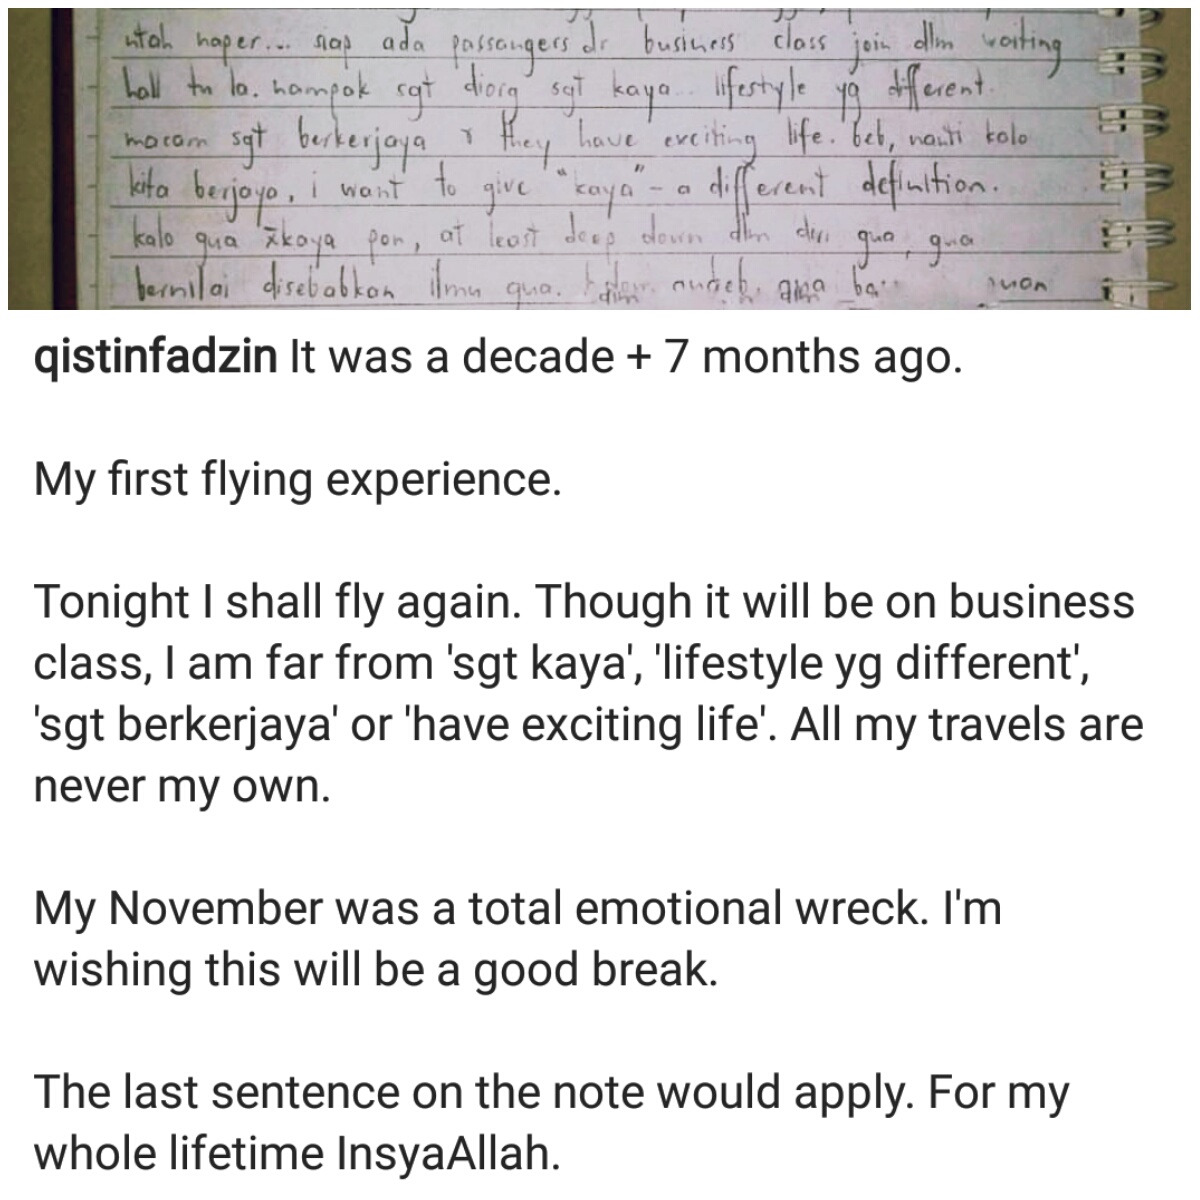 ntah haper... siap ada passangers dr business class join dlm waiting
hall tu la. nampak sgt diorg sgt kaya.. lifestyle yg different.
macam sgt berkerjaya & they have exciting life. beb, nanti kalo
kita berjaya, i want to give "kaya" - a different definition.
kalo gua xkaya pon, at least deep down dlm diri gua, gua
bernilai disebabkan ilmu gua.
qistinfadzin It was a decade + 7 months ago.
My first flying experience.
Tonight I shall fly again. Though it will be on business
class, I am far from 'sgt kaya', 'lifestyle yg different',
'sgt berkerjaya' or 'have exciting life'. All my travels are
never my own.
My November was a total emotional wreck. I'm
wishing this will be a good break.
The last sentence on the note would apply. For my
whole lifetime InsyaAllah.